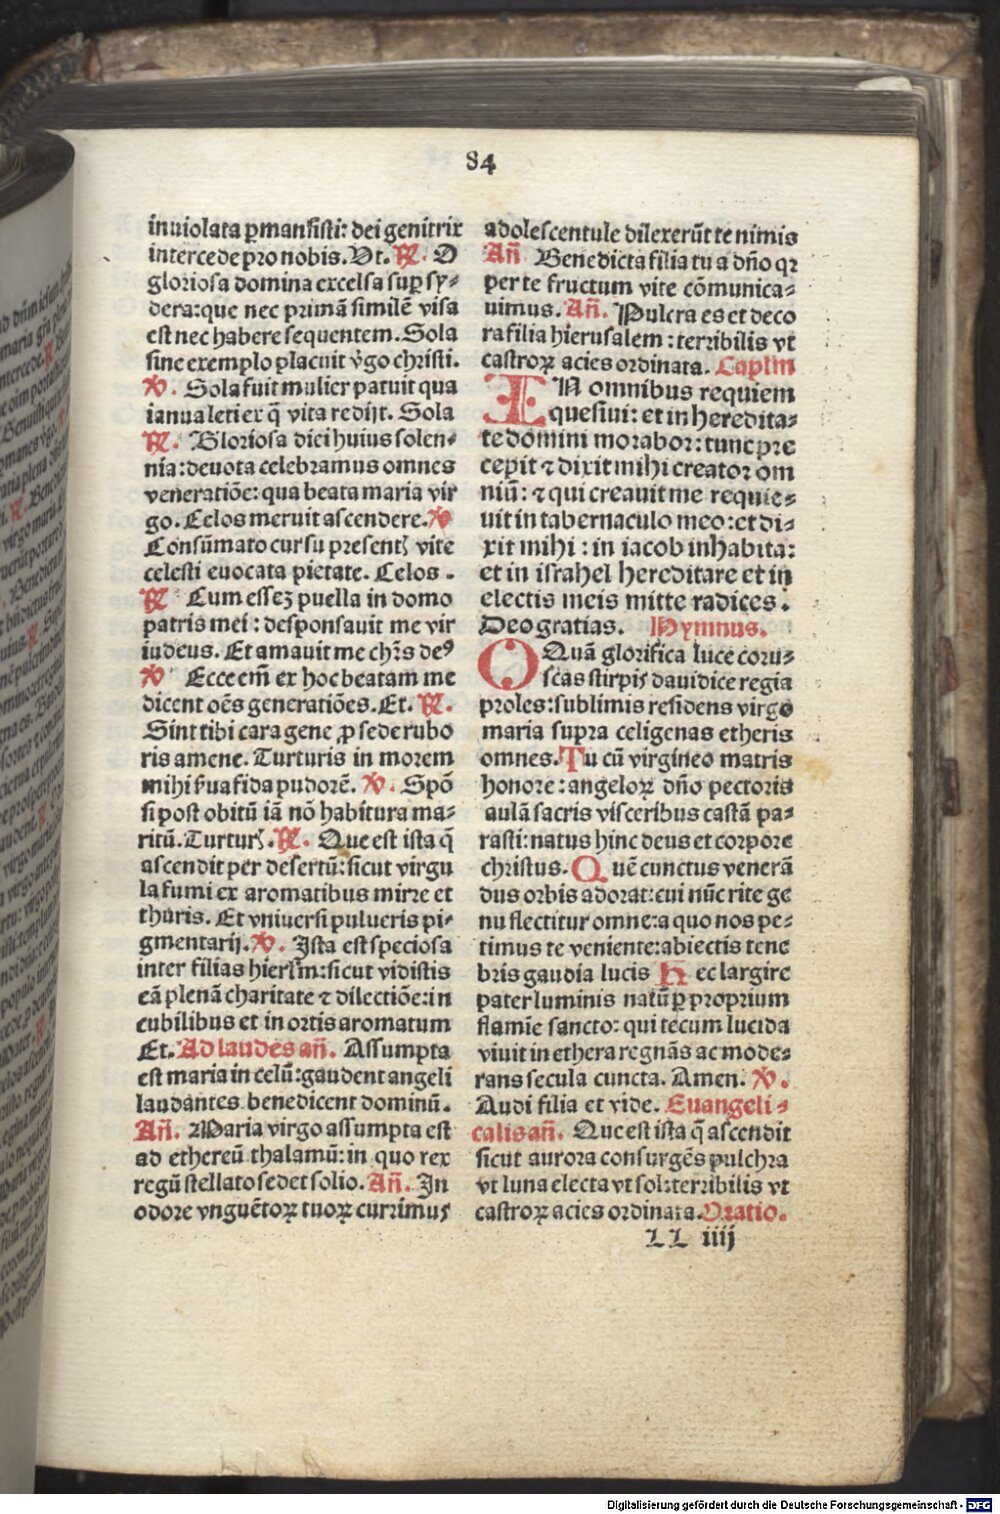 84
inuiolata ꝑmansisti: dei genitrix
intercede pro nobis. Vt. ℟. O
gloriosa domina excelsa suꝑ sy⸗
dera: que nec primā similē visa
est nec habere sequentem. Sola
sine exemplo placuit v̾go christi.
℣. Sola fuit mulier patuit qua
ianua leti ex q̄ vita redijt. Sola
℟. Gloriosa diei huius solen⸗
nia: deuota celebramus omnes
veneratiōe: qua beata maria vir
go. Celos meruit ascendere. ℣
Consūmato cursu presentꝭ vite
celesti euocata pietate. Celos.
℟ Cum esseꝫ puella in domo
patris mei: desponsauit me vir
iudeus. Et amauit me chr̄s deꝰ
℣ Ecce em̄ ex hoc beatam me
dicent oēs generatiōes. Et. ℟.
Sint tibi cara gene ꝓ sede rubo
ris amene. Turturis in morem
mihi ẜua fida pudorē. ℣. Spō
si post obitū iā nō habitura ma⸗
ritū. Turturꝭ. ℟. Que est ista q̄
ascendit per desertū: sicut virgu
la fumi ex aromatibus mirre et
thuris. Et vniuersi pulueris pi⸗
gmentarij. ℣. Ista est speciosa
inter filias hierl̄m: sicut vidistis
eā plenā charitate ⁊ dilectiōe: in
cubilibus et in ortis aromatum
Et. Ad laudes añ. Assumpta
est maria in celū: gaudent angeli
laudantes benedicent dominū.
Añ. Maria virgo assumpta est
ad ethereū thalamū: in quo rex
regū stellato sedet solio. Añ. In
odore vnguētoꝝ tuoꝝ currimus
adolescentule dilexerūt te nimis
Añ Benedicta filia tu a dño qꝛ
per te fructum vite cōmunica⸗
uimus. Añ. Pulcra es et deco
ra filia hierusalem: terribilis vt
castroꝝ acies ordinata. Caplm̄
IN omnibus requiem
quesiui: et in heredita⸗
te domini morabor: tunc pre
cepit ⁊ dixit mihi creator om
niū: ⁊ qui creauit me requie⸗
uit in tabernaculo meo: et di⸗
xit mihi: in iacob inhabita:
et in israhel hereditare et in
electis meis mitte radices.
Deo gratias. Hymnus.
O Quā glorifica luce corus
scas stirpis dauidice regia
proles: sublimis residens virgo
maria supra celigenas etheris
omnes. Tu cū virgineo matris
honore: angeloꝝ dño pectoris
aulā sacris visceribus castā pa⸗
rasti: natus hinc deus et corpore
christus. Quē cunctus venerā
dus orbis adorat: cui nūc rite ge
nu flectitur omne: a quo nos pe⸗
timus te veniente: abiectis tene
bris gaudia lucis Hec largire
pater luminis natū ꝑ proprium
flamīe sancto: qui tecum lucida
viuit in ethera regnās ac mode⸗
rans secula cuncta. Amen. ℣.
Audi filia et vide. Euangeli⸗
calis añ. Que est ista q̄ ascendit
sicut aurora consurgēs pulchra
vt luna electa vt sol: terribilis vt
castroꝝ acies ordinata. Oratio.
LL iiij
Digitalisierung gefördert durch die Deutsche Forschungsgemeinschaft - DFG